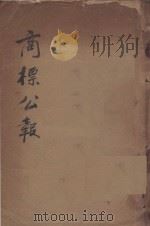 商標公報
www.mtoou.info